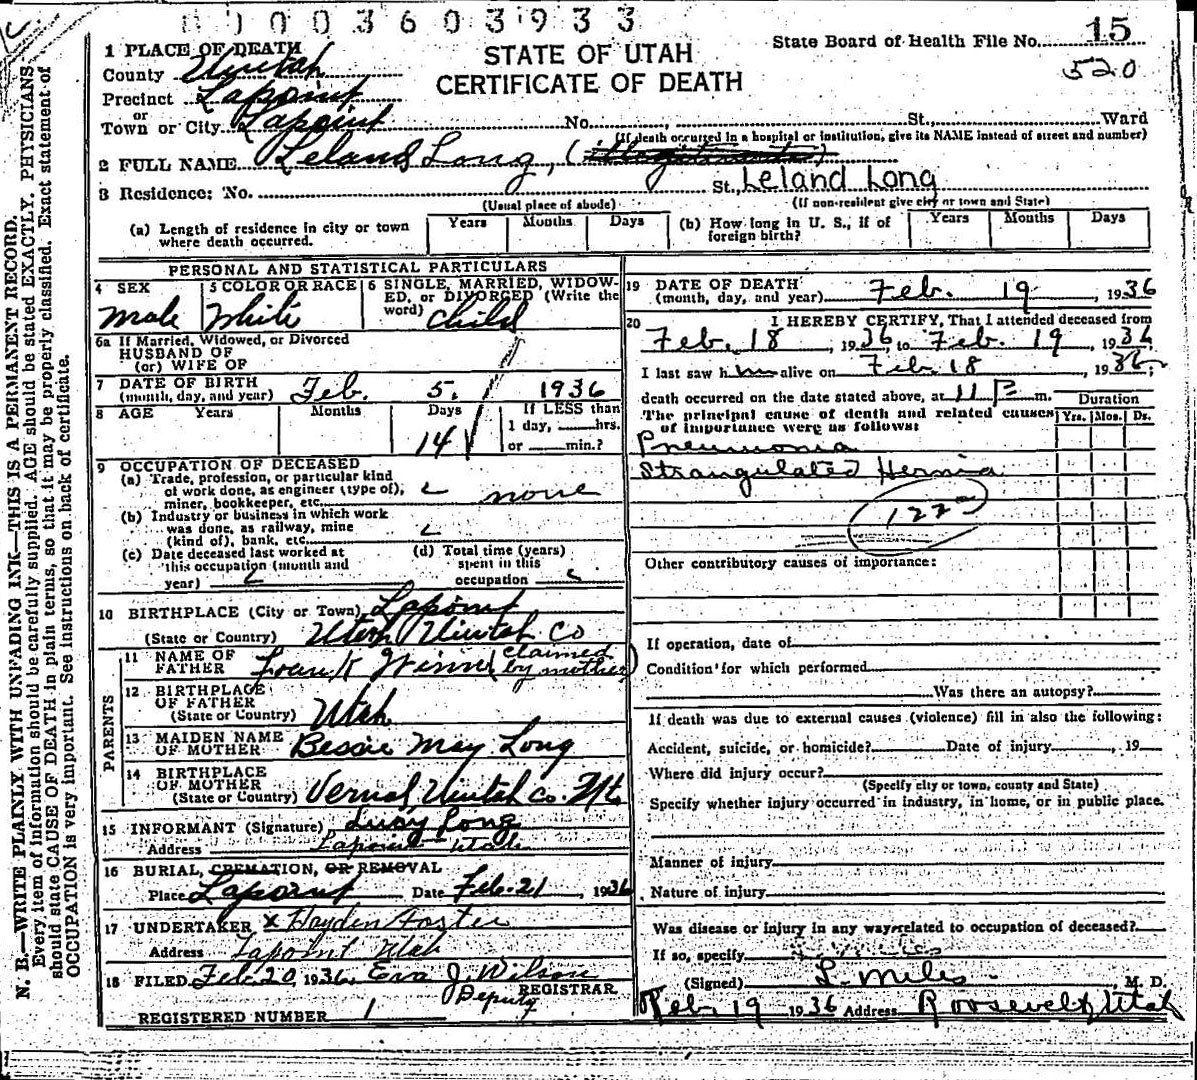 0 0 0 3 6 0 3 9 3 3
State Board of Health File No. 15
520
STATE OF UTAH
CERTIFICATE OF DEATH
1 PLACE OF DEATH
County Uintah
Precinct Lapoint
or
Town or City Lapoint No. St., Ward
(If death occurred in a hospital or institution, give its NAME instead of street and number)
2 FULL NAME Leland Long, (
3 Residence: No. St., Leland Long
(Usual place of abode) (If non-resident give city or town and State)
(a) Length of residence in city or town where death occurred. Years Months Days (b) How long in U. S., if of foreign birth? Years Months Days
PERSONAL AND STATISTICAL PARTICULARS
4 SEX Male
5 COLOR OR RACE White
6 SINGLE, MARRIED, WIDOWED, or DIVORCED (Write the word) Child
6a If Married, Widowed, or Divorced
HUSBAND OF
(or) WIFE OF
7 DATE OF BIRTH
(month, day, and year) Feb. 5, 1936
8 AGE Years Months Days 14 If LESS than
1 day, hrs.
or min.?
9 OCCUPATION OF DECEASED
(a) Trade, profession, or particular kind
of work done, as engineer (type of),
miner, bookkeeper, etc. none
(b) Industry or business in which work
was done, as railway, mine
(kind of), bank, etc.
(c) Date deceased last worked at
this occupation (month and
year)
(d) Total time (years)
spent in this
occupation
10 BIRTHPLACE (City or Town) Lapoint
(State or Country) Utah Uintah Co
PARENTS
11 NAME OF
FATHER Frank Winn (claimed by mother)
12 BIRTHPLACE
OF FATHER
(State or Country) Utah
13 MAIDEN NAME
OF MOTHER Bessie May Long
14 BIRTHPLACE
OF MOTHER
(State or Country) Vernal, Uintah Co. Ut.
15 INFORMANT (Signature) Lucy Long
Address Lapoint Utah
16 BURIAL, CREMATION, OR REMOVAL
Place Lapoint Date Feb. 21, 1936
17 UNDERTAKER x Hayden Foster
Address Lapoint Utah
18 FILED Feb. 20 1936, Eva J. Wilson
Deputy REGISTRAR
REGISTERED NUMBER 1
19 DATE OF DEATH
(month, day, and year) Feb. 19, 1936
20 I HEREBY CERTIFY, That I attended deceased from
Feb. 18, 1936, to Feb. 19, 1936.
I last saw him alive on Feb 18, 1936;
death occurred on the date stated above, at 11 P m.
The principal cause of death and related causes
of importance were as follows:
Duration
Yrs. Mos. Ds.
Pneumonia
Strangulated Hernia
Other contributory causes of importance:
If operation, date of
Condition for which performed
Was there an autopsy?
If death was due to external causes (violence) fill in also the following:
Accident, suicide, or homicide? Date of injury , 19
Where did injury occur?
(Specify city or town, county and State)
Specify whether injury occurred in industry, in home, or in public place.
Manner of injury
Nature of injury
Was disease or injury in any way related to occupation of deceased?
If so, specify
(Signed) L. Miles M. D.
Feb. 19 1936 Address Roosevelt, Utah
N. B.—WRITE PLAINLY WITH UNFADING INK—THIS IS A PERMANENT RECORD.
Every item of information should be carefully supplied. AGE should be stated EXACTLY. PHYSICIANS
should state CAUSE OF DEATH in plain terms, so that it may be properly classified. Exact statement of
OCCUPATION is very important. See instructions on back of certificate.